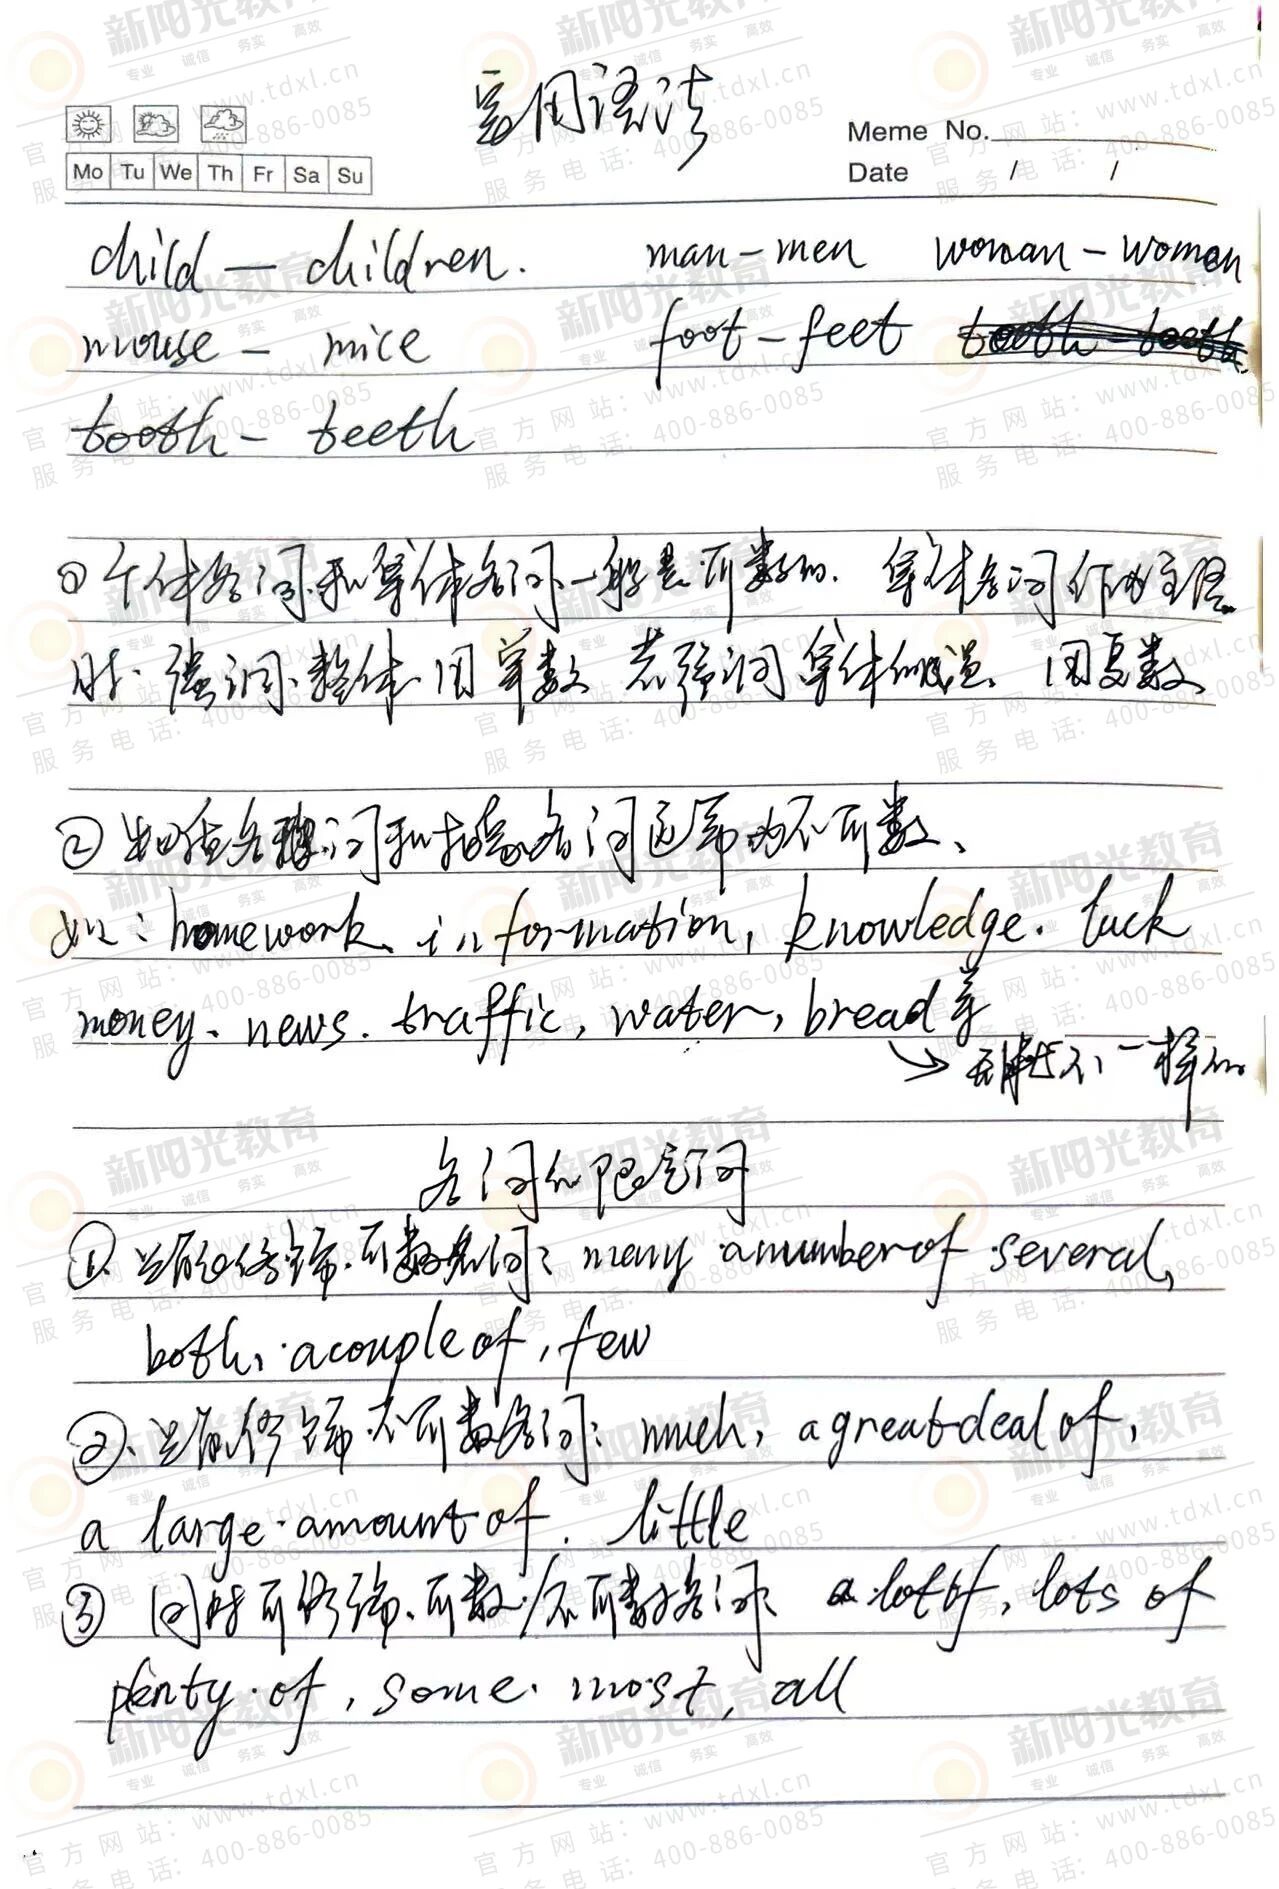 实用语法
Meme No.
Mo Tu We Th Fr Sa Su
Date / /
child — children. man - men woman - women
mouse - mice foot - feet
tooth - teeth
① 个体名词和集体名词一般是可数的. 集体名词作为主语
时. 强调整体用单数 若强调集体成员、用复数、
② 物质名词和抽象名词通常为不可数、
如: homework、information, knowledge. luck
money. news. traffic, water, bread 等
→ 不一样的
名词的限定词
①. 只能修饰可数名词: many a number of several,
both, a couple of, few
②. 只能修饰不可数名词: much, a great deal of,
a large amount of. little
③ 同时可修饰可数/不可数名词: a lot of, lots of
plenty of, some. most, all
新阳光教育
专业 诚信 务实 高效
官方网站: www.tdxl.cn
服务电话: 400-886-0085